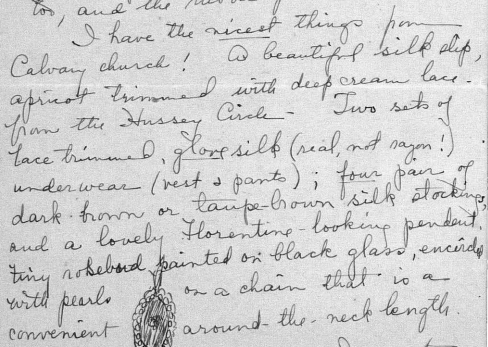 too, and the
I have the nicest things from
Calvary church! A beautiful silk slip,
apricot trimmed with deep cream lace -
from the Hussey Circle - Two sets of
lace trimmed, glove silk (real, not rayon!)
underwear (vest & pants); four pair of
dark brown or taupe-brown silk stockings,
and a lovely Florentine-looking pendent,
tiny rosebud painted on black glass, encircled
with pearls on a chain that is a
convenient around-the-neck length.